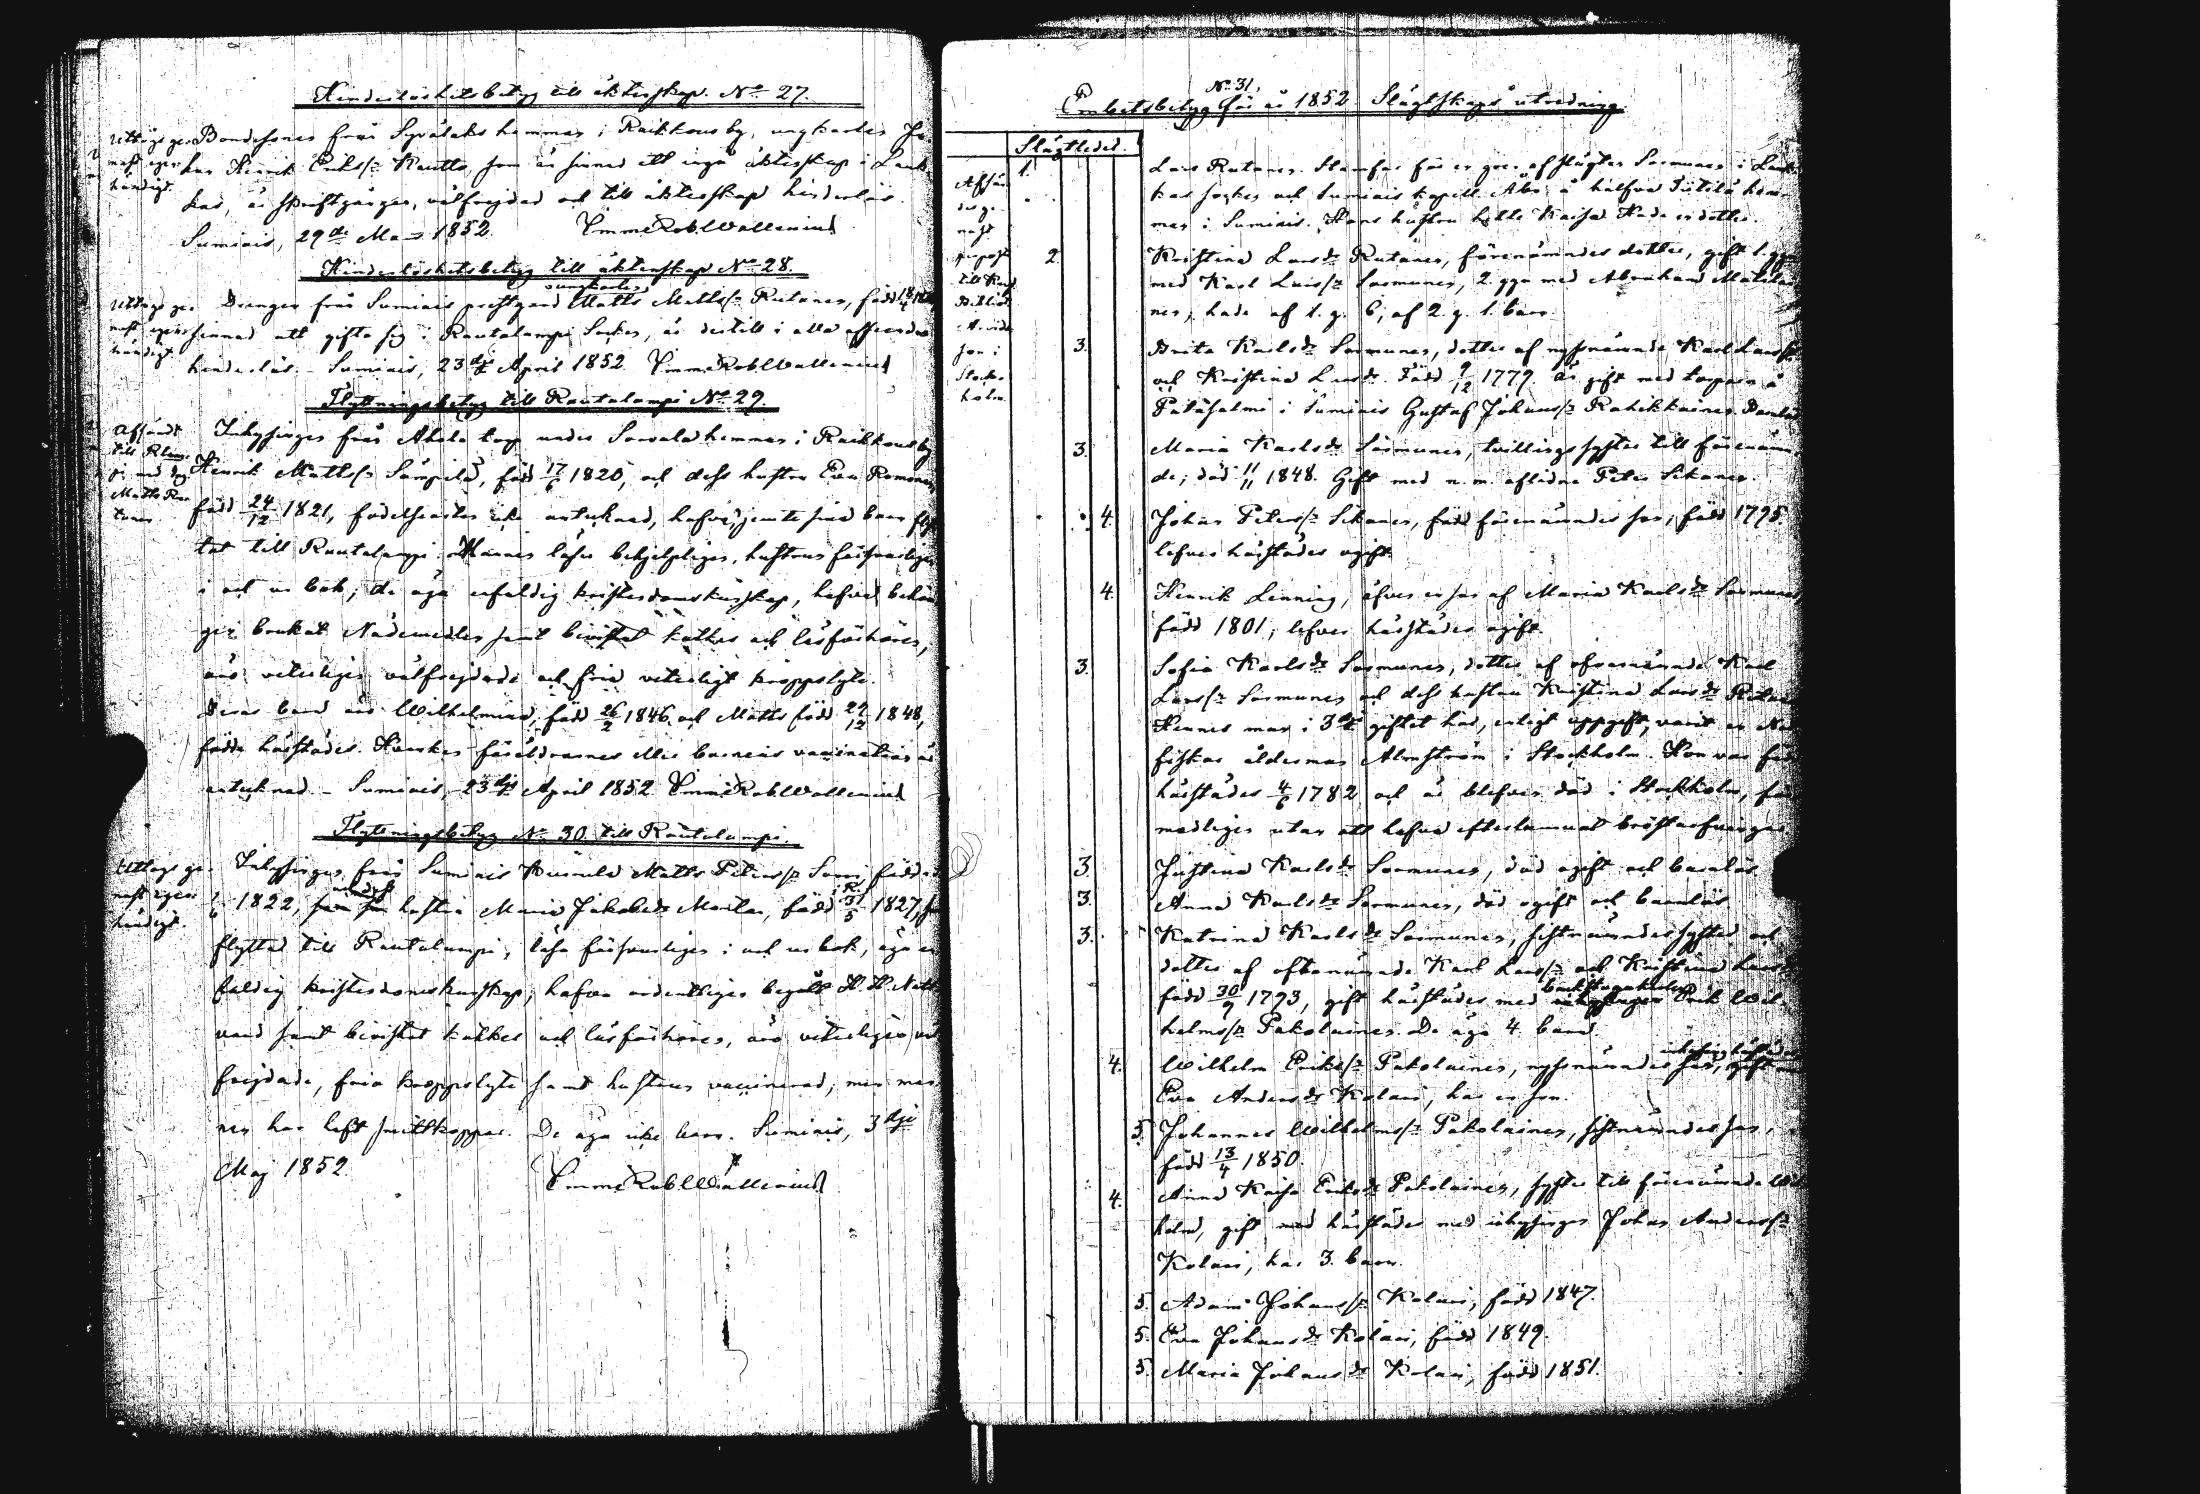 Hinderslöshetsbetyg till äktenskap. No 27.
Uttogs ge-
nast egen-
händigt.
Bondesonen från Syvälaks hemman i Raikkous by, ungkarlen Jo-
han Henrik Eriks/n Rautto, som är sinnad att ingå äktenskap i Lauk-
kas, är skriftgången, välfrejdad och till äktenskap hinderslös.
Sumiais, 29de Mars 1852. Emme Rob. Wallenius
Hinderslöshetsbetyg till äktenskap No 28.
Uttogs ge-
nast egen-
händigt
ungkarlen
Drengen från Sumiais prestgård Matts Matts/n Rutanen, född
sinnad att gifta sig i Rautalampi Socken, är dertill i alla afseenden
hinderslös. - Sumiais, 23dje April 1852 Emme Rob Wallenius
Flyttningsbetyg till Rautalampi No 29.
Afsändt
till Rlam-
pi med drg
Matts Ru-
tanen
Inhysingen från Ahola torp under Sorvala hemman i Raikkous by
Henrik Matts/n Sämpilä, född 17/6 1820, och dess hustru Eva Romonen,
född 24/12 1821, födelseorten icke antecknad, hafva jemte sina barn flyt-
tat till Rautalampi. Mannen läser behjelpligen, hustrun försvarligen
i och ur bok; de äga enfaldig kristendomskunskap, hafva behöri-
gen brukat Nådemedlen samt bevistat kathe- och läsförhören,
äro veterligen välfrejdade och fria veterligt kroppslyte.
Deras barn äro Wilhelmina, född 26/2 1846, och Matts född 29/12 1848,
födda härstädes. Hvarken föräldrarnes eller barnens vaccination är
antecknad. - Sumiais, 23dje April 1852 Emme Rob Wallenius
Flyttningsbetyg No 30. till Rautalampi.
Uttogs ge-
nast egen-
händigt.
Inhysingen från Sumiais Matts Peters/n Sami, född
1822, hustru Maria Jakobsdr Manlar, född 31/5 1827,
flyttad till Rautalampi, läsa försvarligen i och ur bok, äga en-
faldig kristendomskunskap, hafva ordentligen begått H. H. Natt-
vard samt bevistat kathe- och läsförhören, äro veterligen väl-
frejdade, fria kroppslyte samt hustrun vaccinerad, men man-
nen har haft smittkoppor. De äga icke barn. Sumiais, 3dje
Maj 1852 Emme Rob. Wallenius
No 31.
Embetsbetyg för år 1852 Slägtskaps utredning
Slägtleder.
Afsän-
des ge-
nast
pr post
till Kgl
Biblio
Arvids-
son i
Stock-
holm
1. Lars Rutanen. Stamfar för en gren af slägten Sormunen i Lauk-
kas socken och Sumiais kapell. Åbo å halfva Tiitilä hem-
man i Sumiais. Hans hustru hette Kaisa. Hade en dotter.
2. Kristina Larsdr Rutanen, förenämndes dotter, gift 1. ggn
med Karl Lars/n Sormunen, 2. ggn med Abraham Matilai-
nen, hade af 1. g. 6, af 2. g. 1. barn.
3. Brita Karlsdr Sormunen, dotter af nyssnämnde Karl Lars/n
och Kristina Larsdr. Född 9/12 1779. är gift med torparen å
Pätäsalmi i Sumiais Gustaf Johans/n Rahikkainen. Barnlös
3. Maria Karlsdr Sormunen, tvillingssyster till förenämn-
de; död 11/11 1848. Gift med n. m. aflidne Peter Sikanen.
4. Johan Peters/n Sikanen, förenämndes son, född 1795.
lefver härstädes ogift.
4. Henrik Lenning, äfven en son af Maria Karlsdr Sormunen
född 1801, lefver härstädes ogift.
3. Sofia Karlsdr Sormunen, dotter af ofvannämnde Karl
Lars/n Sormunen och dess hustru Kristina Larsdr Rutanen
Hennes man i 3dje giftet har, enligt uppgift, varit en
fiskar åldermannen Almström i Stockholm. Hon var född
härstädes 4/6 1782 och är blefven död i Stockholm, för-
modligen utan att hafva efterlemnat bröstarfvingar
3. Justina Karlsdr Sormunen, död ogift och barnlös
3. Anna Karlsdr Sormunen, död ogift och barnlös
3. Katrina Karlsdr Sormunen, sistnämndes syster och
dotter af oftanämnde Karl Lars/n och Kristina Larsdr
född 30/9 1793, gift härstädes med Erik Wil-
helms/n Pakolainen. De äga 4. barn.
4. Wilhelm Eriks/n Pakolainen, nyssnämndes son, gift med
Eva Andersdr Kolari, har en son.
5. Johannes Wilhelms/n Pakolainen, sistnämndes son,
född 13/4 1850.
4. Anna Kaisa Eriksdr Pakolainen, syster till förenämnde Wil-
helm, gift härstädes med inhysingen Johan Anders/n
Kolari, har 3. barn.
5. Adam Johans/n Kolari, född 1847.
5. Eva Johansdr Kolari, född 1849.
5. Maria Johansdr Kolari, född 1851.